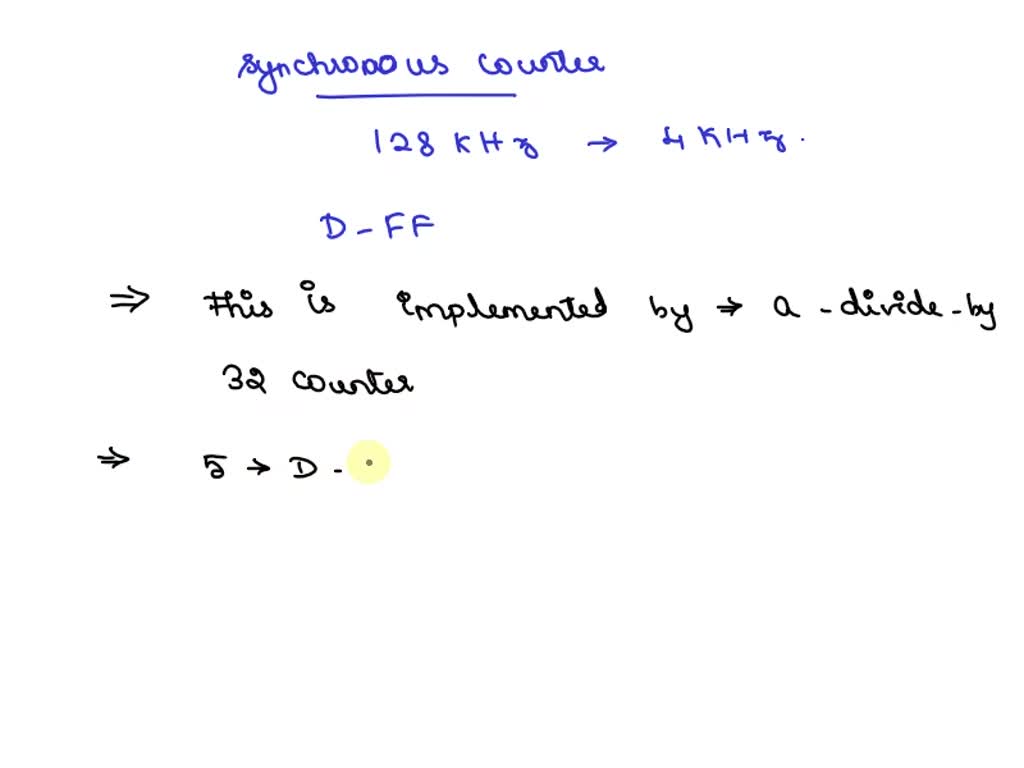 Synchronous counter
128 KHz → 4 KHz.
D - FF
⇒ This is implemented by → a - divide - by
32 counter
⇒ 5 → D -